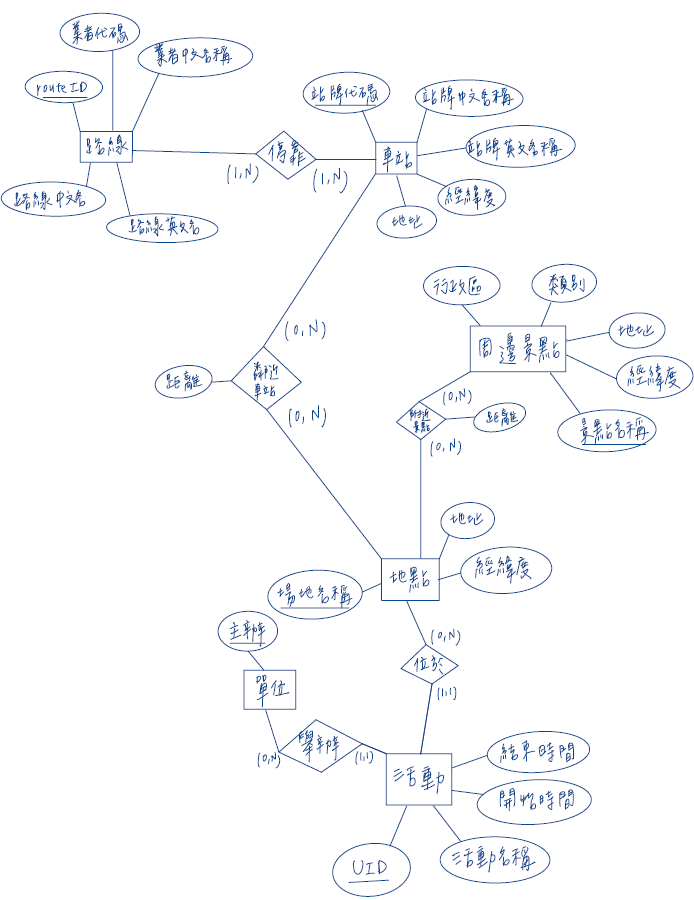 業者代碼
業者中文名稱
routeID
路線
路線中文名
路線英文名
停靠
(1,N)
(1,N)
站牌代碼
站牌中文名稱
站牌英文名稱
車站
經緯度
地址
(0,N)
距離
鄰近
車站
(0,N)
行政區
類別
地址
周邊景點
經緯度
景點名稱
(0,N)
附近
景點
距離
(0,N)
地址
地點
經緯度
場地名稱
(0,N)
位於
(1,1)
主辦
單位
(0,N)
舉辦
(1,1)
活動
結束時間
開始時間
活動名稱
UID